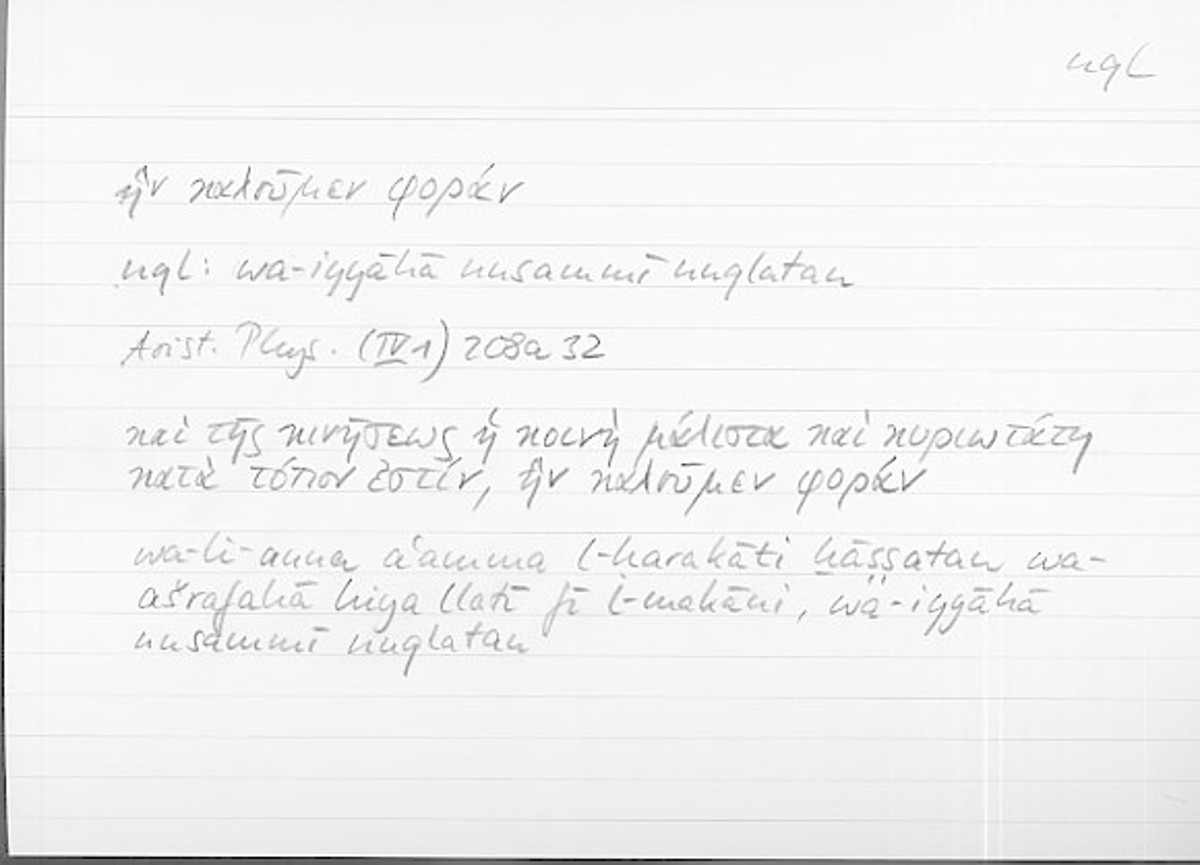 nql
ἣν καλοῦμεν φοράν
nql: wa-iyyāhā nusammī nuqlatan
Arist. Phys. (IV 1) 208a 32
καὶ τῆς κινήσεως ἡ κοινὴ μάλιστα καὶ κυριωτάτη
κατὰ τόπον ἐστίν, ἣν καλοῦμεν φοράν
wa-li-anna aʿamma l-ḥarakāti ḫāṣṣatan wa-
ašrafahā hiya llatī fī l-makāni, wa-iyyāhā
nusammī nuqlatan